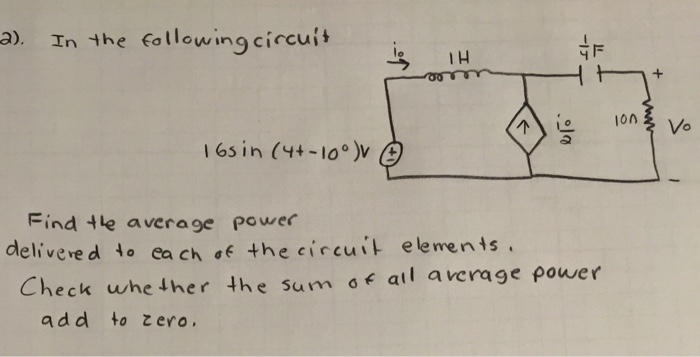 2). In the following circuit
i₀
1H
1/4 F
+
i₀/2
10Ω
V₀
16sin (4t-10°)V
+
-
-
Find the average power
delivered to each of the circuit elements.
Check whether the sum of all average power
add to zero.